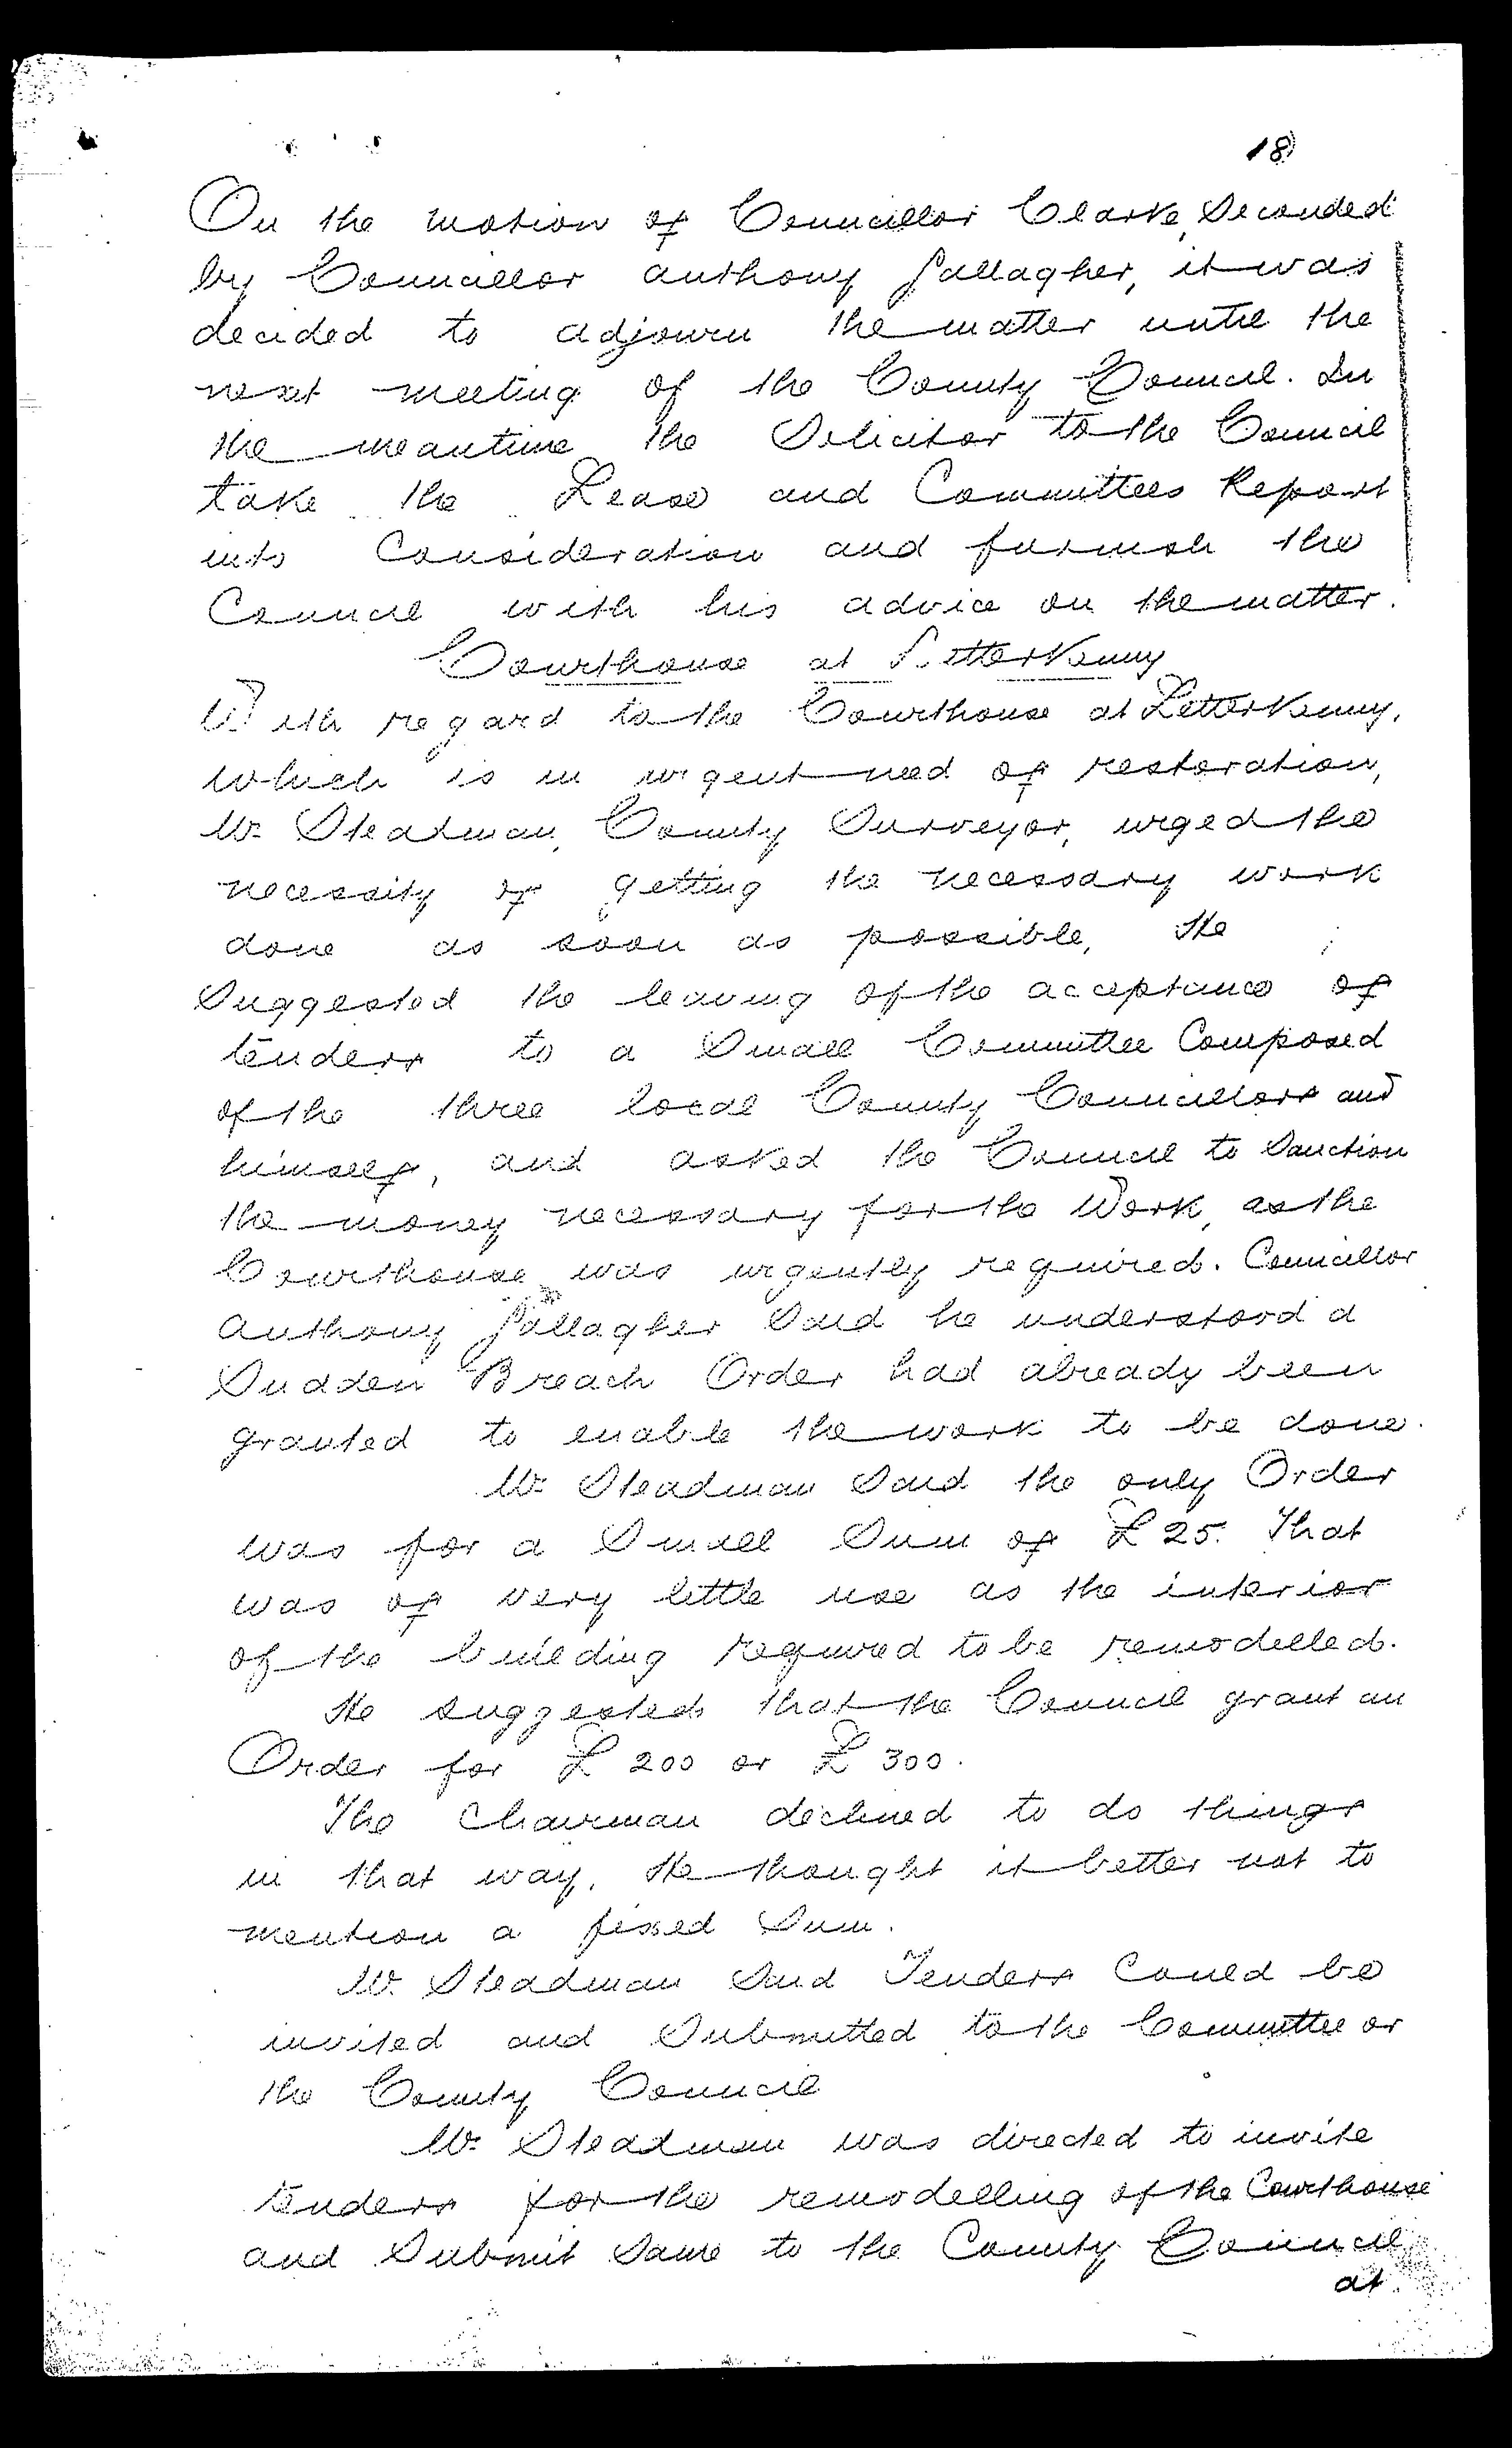 18
On the motion of Councillor Clarke, Seconded
by Councillor Anthony Gallagher, it was
decided to adjourn the matter until the
next meeting of the County Council. In
the meantime the Solicitor to the Council
take the Lease and Committees Report
into Consideration and furnish the
Council with his advice on the matter.
Courthouse at Letterkenny
With regard to the Courthouse at Letterkenny,
which is in urgent need of restoration,
Mr. Steadman, County Surveyor, urged the
necessity of getting the necessary work
done as soon as possible, He
Suggested the leaving of the acceptance of
tenders to a Small Committee Composed
of the three local County Councillors and
himself, and asked the Council to Sanction
the money necessary for the Work, as the
Courthouse was urgently required. Councillor
Anthony Gallagher Said he understood a
Sudden Breach Order had already been
granted to enable the work to be done.
Mr. Steadman Said the only Order
was for a Small Sum of £25. That
was of very little use as the interior
of the building required to be remodelled.
He suggested that the Council grant an
Order for £200 or £300.
The Chairman declined to do things
in that way. He thought it better not to
mention a fixed Sum.
Mr. Steadman Said Tenders Could be
invited and Submitted to the Committee or
the County Council
Mr. Steadman was directed to invite
tenders for the remodelling of the Courthouse
and Submit Same to the County Council
at